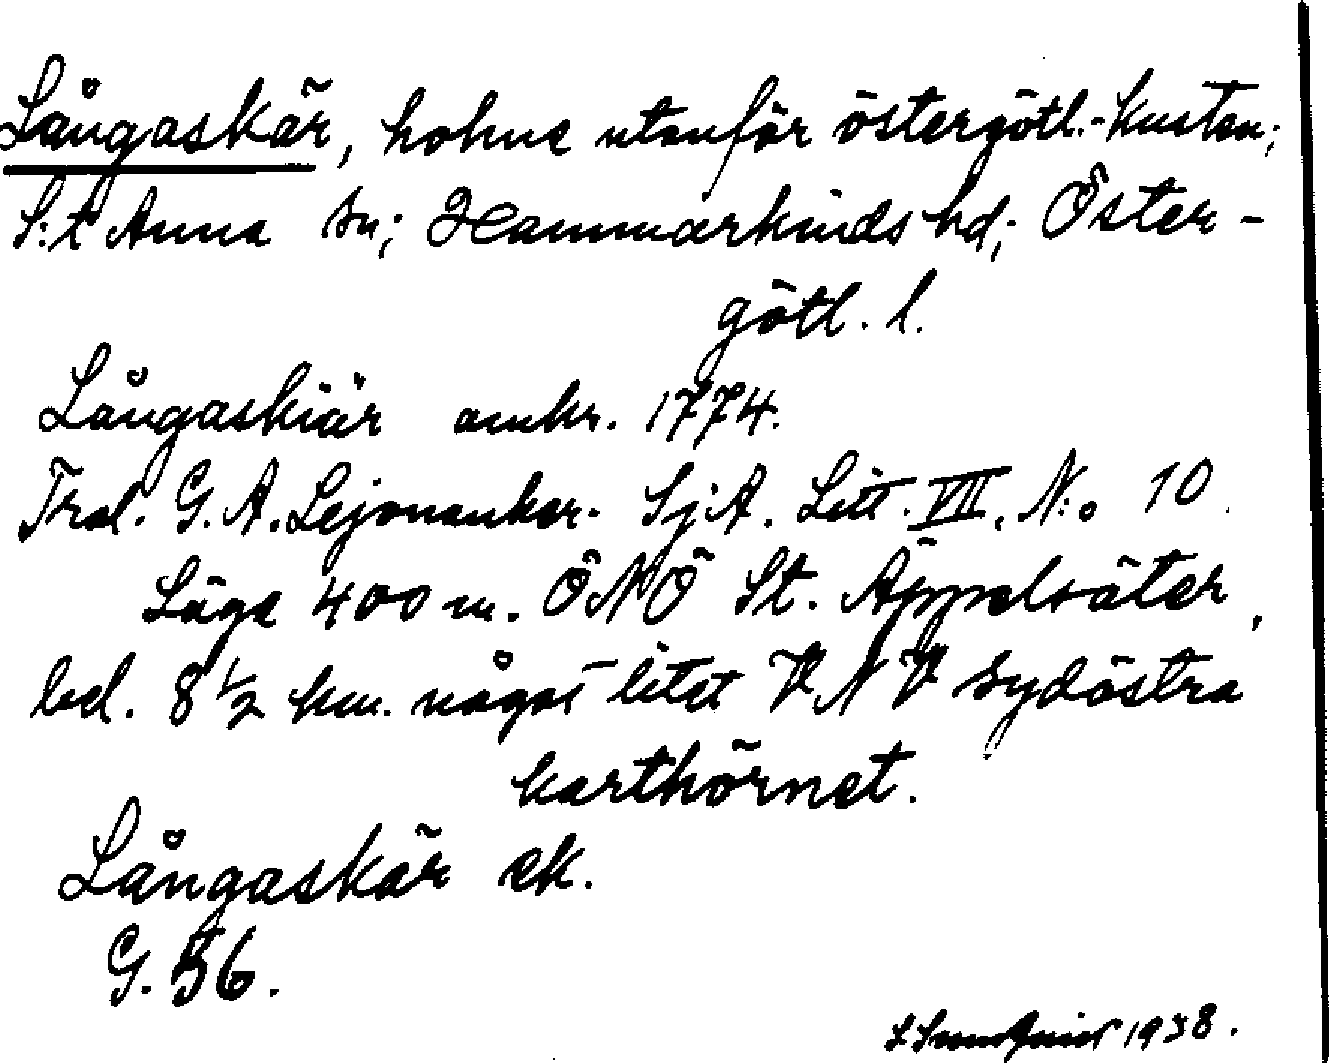 Långaskär, holme utanför östergötl.-kusten;
S:t Anna sn; Hammarkinds hd; Öster-
götl. l.
Långaskiär omkr. 1774.
Trol. G. A. Lejonanker. SjA. Litt. VII. N:o 10.
Läge 400 m. ÖNÖ St. Äppelsäter,
bel. 8 1/2 km. något litet VNV sydöstra
karthörnet.
Långaskär ek.
G. 36.
1938.